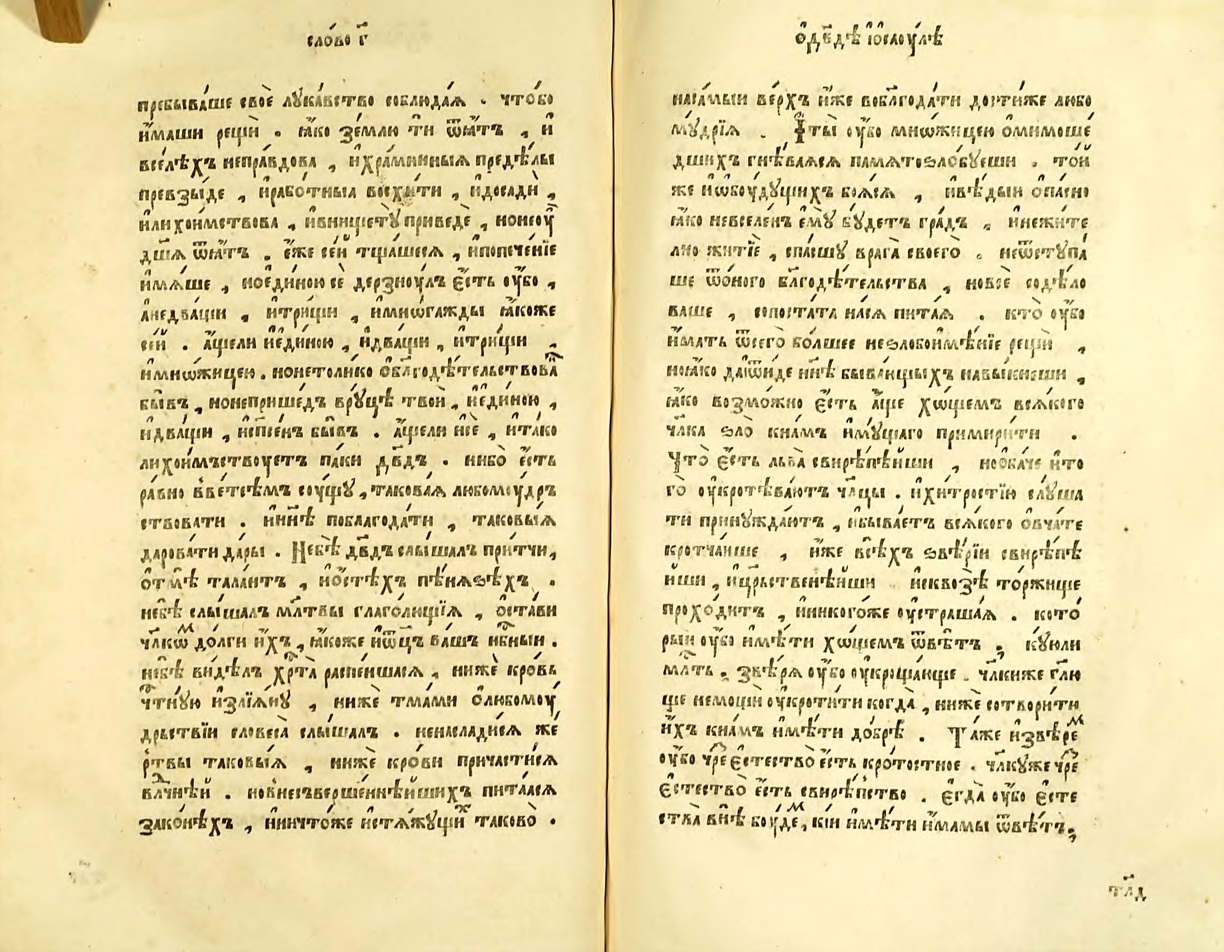 сло́во г҃
пребыва́ше своѐ лꙋка́вство соблюда́ѧ . что́бо
и҆́маши рещѝ . ꙗ҆́ко зе́млю ти ѿѧ́тъ , и҆
всѣ́хъ непра́вдова , и҆хра́мнныѧ предѣ́лы
превзы́де , и҆рабо́тныѧ восхи́ти , и҆досадѝ ,
и҆лихои́мствова , и҆вни́щетꙋ приведѐ , нонеоу҆
дшїѧ ѿѧ́тъ . є҆́же се́й тща́шесѧ , и҆попече́нїе
и҆мѧ́ше , ное҆ди́ною сѐ дерзноу́лъ є҆́сть оу҆́бо ,
а҆недва́щи , и҆три́щи , и҆мно́гажды ꙗ҆́коже
се́й . а҆́щели и҆е҆ди́ною , и҆два́щи , и҆три́щи ,
и҆мно́жицею . нонето́лико ѡ҆бл҃годѣ́тельствова
бы́въ , нонеприше́дъ врꙋцѣ̀ твоѝ , и҆е҆ди́ною ,
и҆два́щи , и҆спсе́нъ бы́въ . а҆́щели и҆сѐ , и҆та́ко
лихои́мъствоуетъ па́ки дв҃дъ . ни́бо є҆́сть
ра́вно вве́тсѣмъ соу́щꙋ , такова́ѧ любомоу́др
ствовати . и҆нн҃ѣ поблагода́ти , таковы́ѧ
дарова́ти да́ры . Не́бѣ дв҃дъ слы́шалъ при́тчи ,
о҆тмѣ̀ тала́нтъ , и҆о҆стѣ́хъ пѣ́нѧзѣхъ .
не́бѣ слы́шалъ мл҃твы глаго́лющїѧ , о҆ста́ви
чл҃кѡм до́лги и҆́хъ , ꙗ҆́коже и҆ѿц҃ъ ва́шъ нб҃ный .
не́бѣ ви́дѣлъ хр҃та распе́ншасѧ , нижѐ кро́вь
чтнꙋ́ю и҆злїѧ́нꙋ , нижѐ тма́ми ѡ҆любомоу́
дрьствїи словеса̀ слы́шалъ . ненаслади́сѧ же́
ртвы таковы́ѧ , нижѐ кро́ви причасти́сѧ
влч҃нѣй . новнесъвершеннѣ́йшихъ пита́лсѧ
зако́нѣхъ , ничто́же и҆стѧжꙋ́щих таково̀ .
ѡ҆дв҃дѣ и҆ѡ҆саоу́лѣ
наса́мыи ве́рхъ и҆́же воблагода́ти дости́же любо
мꙋ́дрїѧ . И҆ты̀ оу҆́бо мно́жицею ѡ҆мимоше́
дшихъ гнѣ́ваѧсѧ памѧтоѕло́бꙋеши . то́й
же и҆ѡ҆боу́дꙋщихъ боѧ́сѧ , и҆вѣ́дыи о҆па́сно
ꙗ҆́ко невселе́нъ є҆мꙋ̀ бꙋ́детъ гра́дъ , и҆нежи́те
лно житїѐ , спа́сшꙋ врага̀ своего̀ . неѿстꙋпа́
ше ѿо́ного бл҃годѣ́тельства , новсѐ содѣ́ло
ваше , сопоста́та нас́ѧ пита́ѧ . кто̀ оу҆́бо
и҆́мать ѿсего̀ бо́лшее неѕлобоимѣ́нїе рещѝ ,
ноꙗ҆́ко даѿи́де нн҃ѣ быва́ющыхъ навы́кнеши ,
ꙗ҆́ко возмо́жно є҆́сть а҆́ще хо́щемъ вся́кого
чл҃ка ѕло̀ кна́мъ и҆мꙋ́щаго примири́ти .
Что̀ є҆́сть льва̀ свирѣ́пѣйши , нооба́че и҆то
го̀ оу҆кротѣва́ютъ чл҃цы . и҆хи́тростїю слꙋ́ша
ти принꙋжда́ютъ , и҆быва́етъ вся́кого о҆вча́те
кротча́ише , и҆́же всѣ́хъ ѕвѣ́рїи свирѣ́пѣ
иши , и҆цр҃ьственнѣ́йши и҆сквозѣ̀ то́ржище
прохо́дитъ , и҆никого́же оу҆страша́ѧ . кото́
рыи оу҆́бо и҆мѣ́ти хо́щемъ ѿвѣ́тъ , кꙋ́юли
мл҃ть . звѣ́рѧ оу҆́бо оу҆кроща́юще . чл҃киже гл҃ю
ще немощнѝ оу҆кроти́ти когда̀ , нижѐ сотвори́ти
и҆́хъ кна́мъ и҆мѣ́ти до́брѣ . Та́же и҆звѣ́рем
оу҆́бо чре є҆стество̀ є҆́сть кро́тостное . чл҃кꙋже чре
є҆стество̀ є҆́сть свирѣ́пство . є҆гда̀ оу҆́бо є҆́сте
ства̀ внѣ̀ боу́дем , кі́и и҆мѣ́ти и҆́мамы ѿвѣ́тъ ,
тл҃д